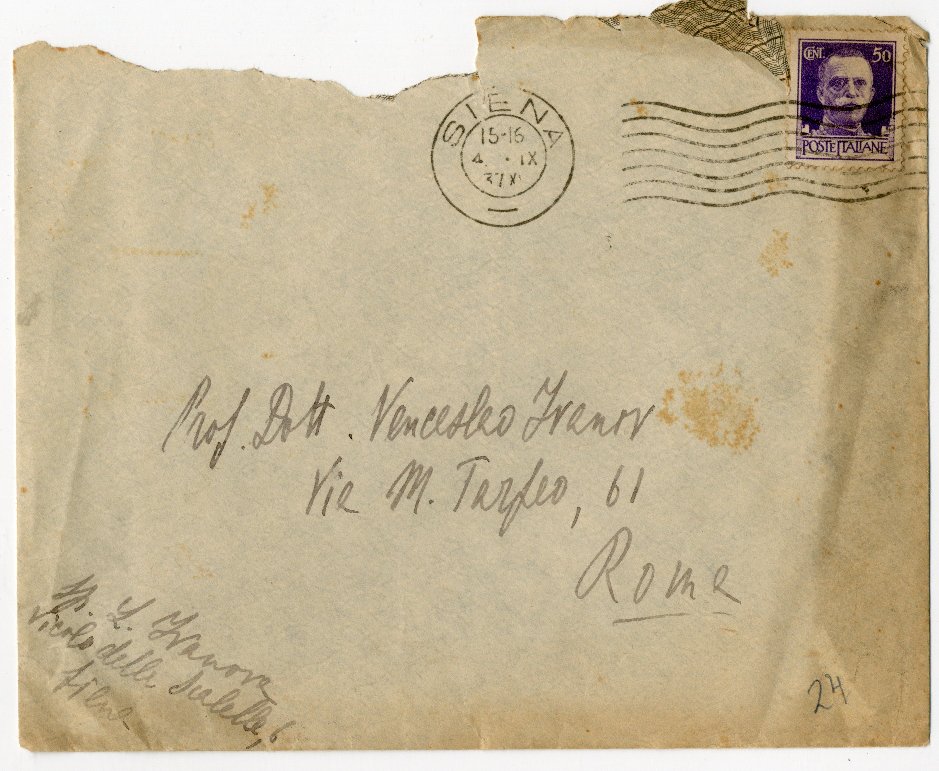 SIENA
15-16
4 · IX
37 X
CENT. 50
POSTE ITALIANE
Prof. Dott. Venceslao Ivanov
Via M. Tarpeo, 61
Roma
L. Ivanova
Vicolo delle Scalelle, 6
Siena
24